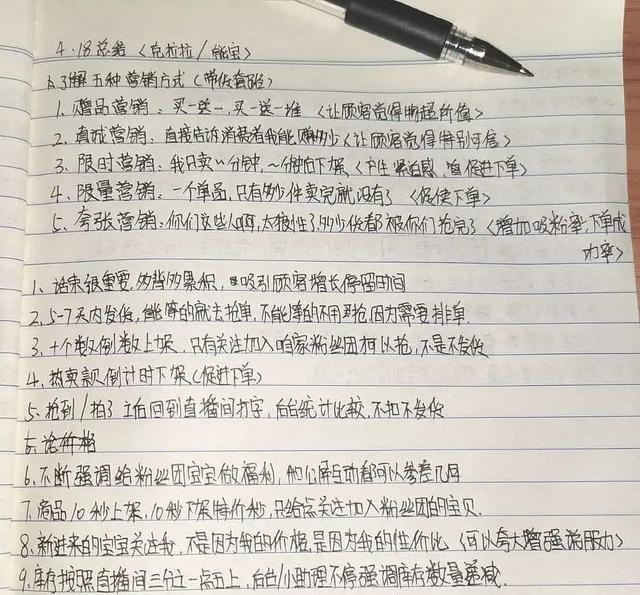 4.18总结〈克拉拉/能宝〉
1.了解五种营销方式（带低套路）
1.赠品营销：买一送一，买一送一堆〈让顾客觉得物超所值〉
2.真诚营销：直接告诉消费者我能赚多少〈让顾客觉得特别可信〉
3.限时营销：我只卖~分钟，~分钟内下架，〈产生紧迫感，促进下单〉
4.限量营销：一个单品，只有多少件卖完就没有了〈促使下单〉
5.夸张营销：你们这些人啊，太狼性了，多少件都被你们抢完了〈增加吸粉率，下单成
功率〉
1、话术很重要，多背多累积，吸引顾客增长停留时间
2、5-7天内发货，能等的就去抢单，不能等的不用抢因为需要排单.
3.十个数倒数上架，只有关注加入咱家粉丝团可以抢，不是不发货
4.热卖款倒计时下架（促进下单）
5.抢到/拍了立白回到直播间打字，后台统计比较，不扣不发货
6.不断强调给粉丝团宝宝做福利，他公屏互动都可以参差几毋
7.商品10秒上架，10秒下架特价秒，只给点关注加入粉丝团的宝贝.
8.新进来的宝宝关注我，不是因为我的价格，是因为我的性价比〈可以夸大增强说服力〉
9.库存按照直播间三分之一点五上，后台/小助理不停强调库存数量递减.